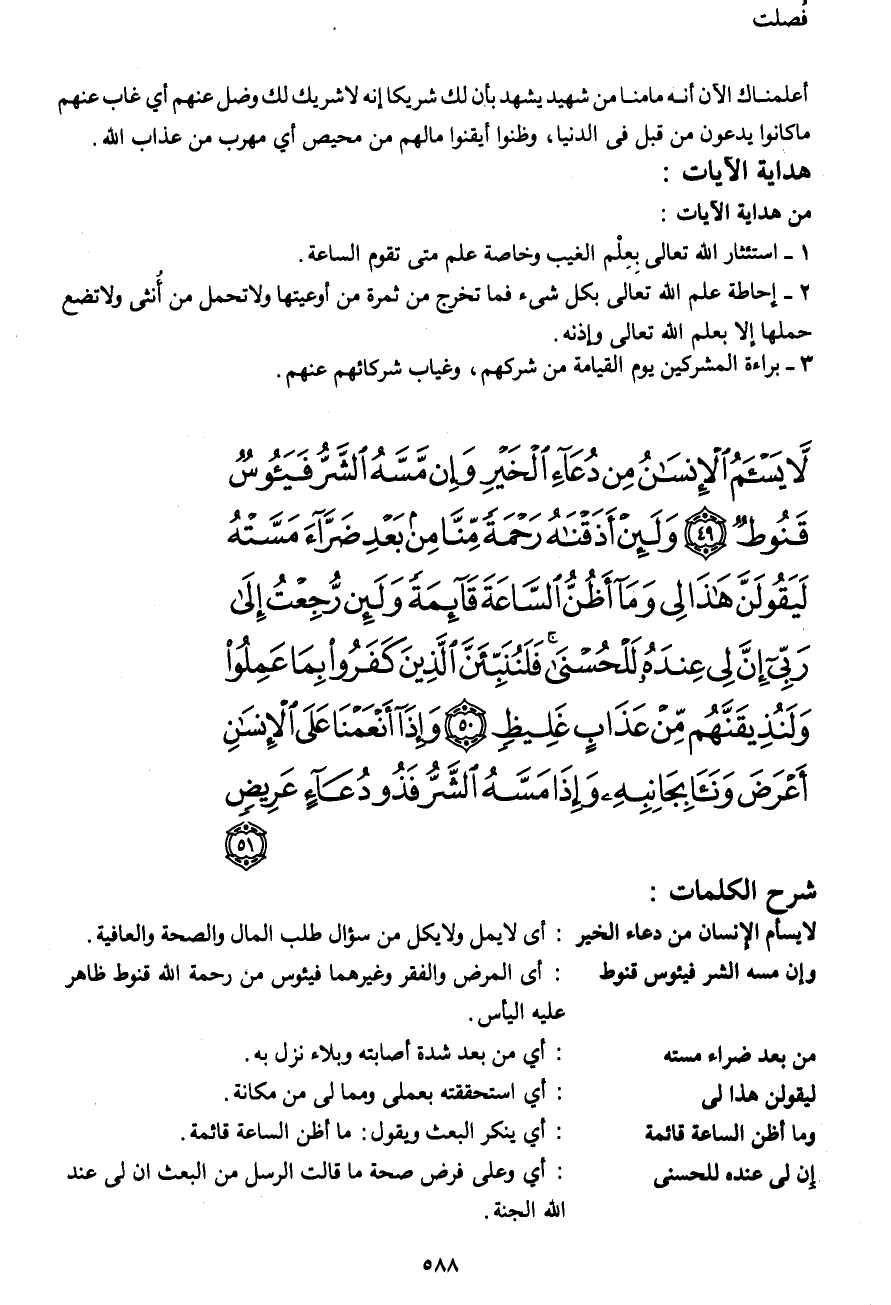 فُصلت
أعلمنـاك الآن أنـه مامنـا من شهيد يشهد بأن لك شريكا إنه لاشريك لك وضل عنهم أي غاب عنهم
ماكانوا يدعون من قبل فى الدنيا، وظنوا أيقنوا مالهم من محيص أي مهرب من عذاب الله.
هداية الآيات :
من هداية الآيات :
١ ـ استئثار الله تعالى بِعِلْم الغيب وخاصة علم متى تقوم الساعة.
٢ ـ إحاطة علم الله تعالى بكل شىء فما تخرج من ثمرة من أوعيتها ولاتحمل من أُنثى ولاتضع
حملها إلا بعلم الله تعالى وإذنه.
٣ ـ براءة المشركين يوم القيامة من شركهم، وغياب شركائهم عنهم.
لَّا يَسْـَٔمُ ٱلْإِنسَـٰنُ مِن دُعَآءِ ٱلْخَيْرِ وَإِن مَّسَّهُ ٱلشَّرُّ فَيَـُٔوسٌ
قَنُوطٌ ٤٩ وَلَئِنْ أَذَقْنَـٰهُ رَحْمَةً مِّنَّا مِنۢ بَعْدِ ضَرَّآءَ مَسَّتْهُ
لَيَقُولَنَّ هَـٰذَا لِى وَمَآ أَظُنُّ ٱلسَّاعَةَ قَآئِمَةً وَلَئِن رُّجِعْتُ إِلَىٰ
رَبِّىٓ إِنَّ لِى عِندَهُۥ لَلْحُسْنَىٰ ۚ فَلَنُنَبِّئَنَّ ٱلَّذِينَ كَفَرُوا۟ بِمَا عَمِلُوا۟
وَلَنُذِيقَنَّهُم مِّنْ عَذَابٍ غَلِيظٍ ٥٠ وَإِذَآ أَنْعَمْنَا عَلَى ٱلْإِنسَـٰنِ
أَعْرَضَ وَنَـَٔا بِجَانِبِهِۦ وَإِذَا مَسَّهُ ٱلشَّرُّ فَذُو دُعَآءٍ عَرِيضٍ
٥١
شرح الكلمات :
لايسأم الإنسان من دعاء الخير : أى لايمل ولايكل من سؤال طلب المال والصحة والعافية.
وإن مسه الشر فيئوس قنوط : أى المرض والفقر وغيرهما فيئوس من رحمة الله قنوط ظاهر
عليه اليأس.
من بعد ضراء مسته : أي من بعد شدة أصابته وبلاء نزل به.
ليقولن هذا لى : أي استحققته بعملى ومما لى من مكانة.
وما أظن الساعة قائمة : أي ينكر البعث ويقول: ما أظن الساعة قائمة.
إن لى عنده للحسنى : أي وعلى فرض صحة ما قالت الرسل من البعث ان لى عند
الله الجنة.
٥٨٨